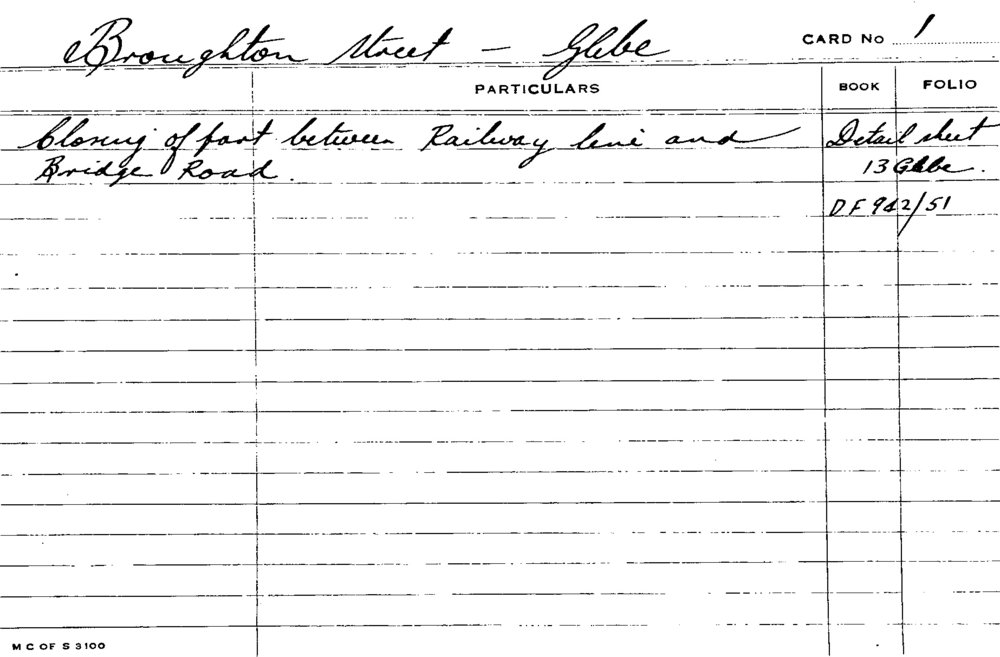 Broughton Street - Glebe CARD No 1
PARTICULARS BOOK FOLIO
Closing of part between Railway line and Detail sheet
Bridge Road. 13 Glebe.
DF 942/51
M C OF S 3100